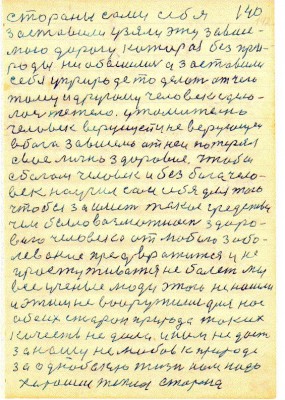 стораны сами себя 140
заставили узяли эту зависи-
мою дорогу которая без при-
роды ни обашлися а заставили
себя у природе то делат от чего
тому и другому человеку сдело-
лося тежело. утомителено
человек верующети не верующи
в бога зависило от неи потерял
свое лично здоровие, чтобы
с богом человек и без бога чело-
век научил сам себя для того
чтобы за имет такое средства
чем было возможност здоро-
вого человека от любого забо-
левание предвратится и не
простуживатся не болет мы
все ученые люди этого не нашли
и этим не вооружили для нас
обеих старон природа таких
качеств не дала. и ним не даст
за нашу не любов к природе
за однобокую жизн нам надо
хорошая тёплая старона